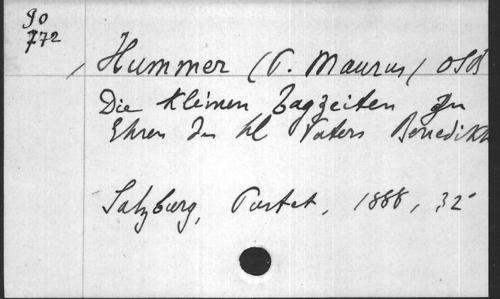 90
772
Hummer (P. Maurus) OSB
Die kleinen Tagzeiten zu
Ehren des hl Vaters Benedikt
Salzburg, Pustet, 1888, 32°